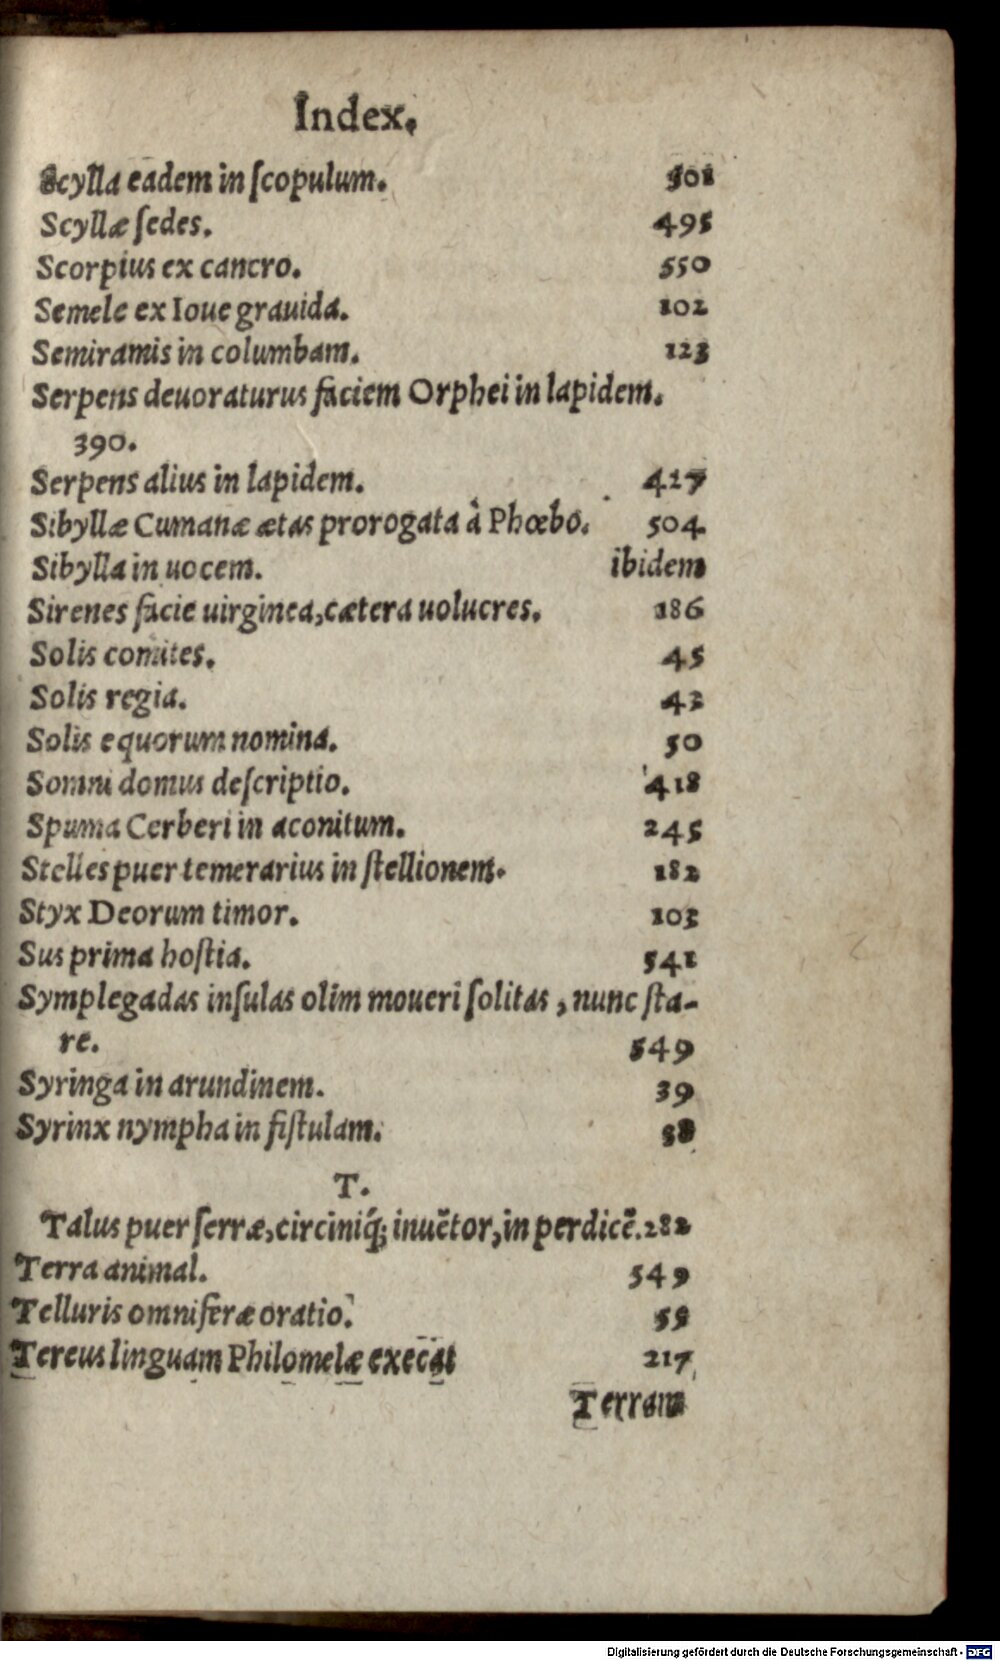 Index.
Scylla eadem in ſcopulum. 501
Scyllæ ſedes. 495
Scorpius ex cancro. 550
Semele ex Ioue grauida. 102
Semiramis in columbam. 123
Serpens deuoraturus faciem Orphei in lapidem.
390.
Serpens alius in lapidem. 427
Sibyllæ Cumanæ ætas prorogata à Phœbo. 504
Sibylla in uocem. ibidem
Sirenes facie uirginea, cætera uolucres. 186
Solis comites. 45
Solis regia. 43
Solis equorum nomina. 50
Somni domus deſcriptio. 418
Spuma Cerberi in aconitum. 245
Stelles puer temerarius in ſtellionem. 182
Styx Deorum timor. 103
Sus prima hoſtia. 541
Symplegadas inſulas olim moueri ſolitas, nunc ſta-
re. 549
Syringa in arundinem. 39
Syrinx nympha in fiſtulam. 38
T.
Talus puer ſerræ, circiniq́; inuẽtor, in perdicẽ. 282
Terra animal. 549
Telluris omniferæ oratio.
Tereus linguam Philomelæ execat 217
Terram
Digitalisierung gefördert durch die Deutsche Forschungsgemeinschaft - DFG